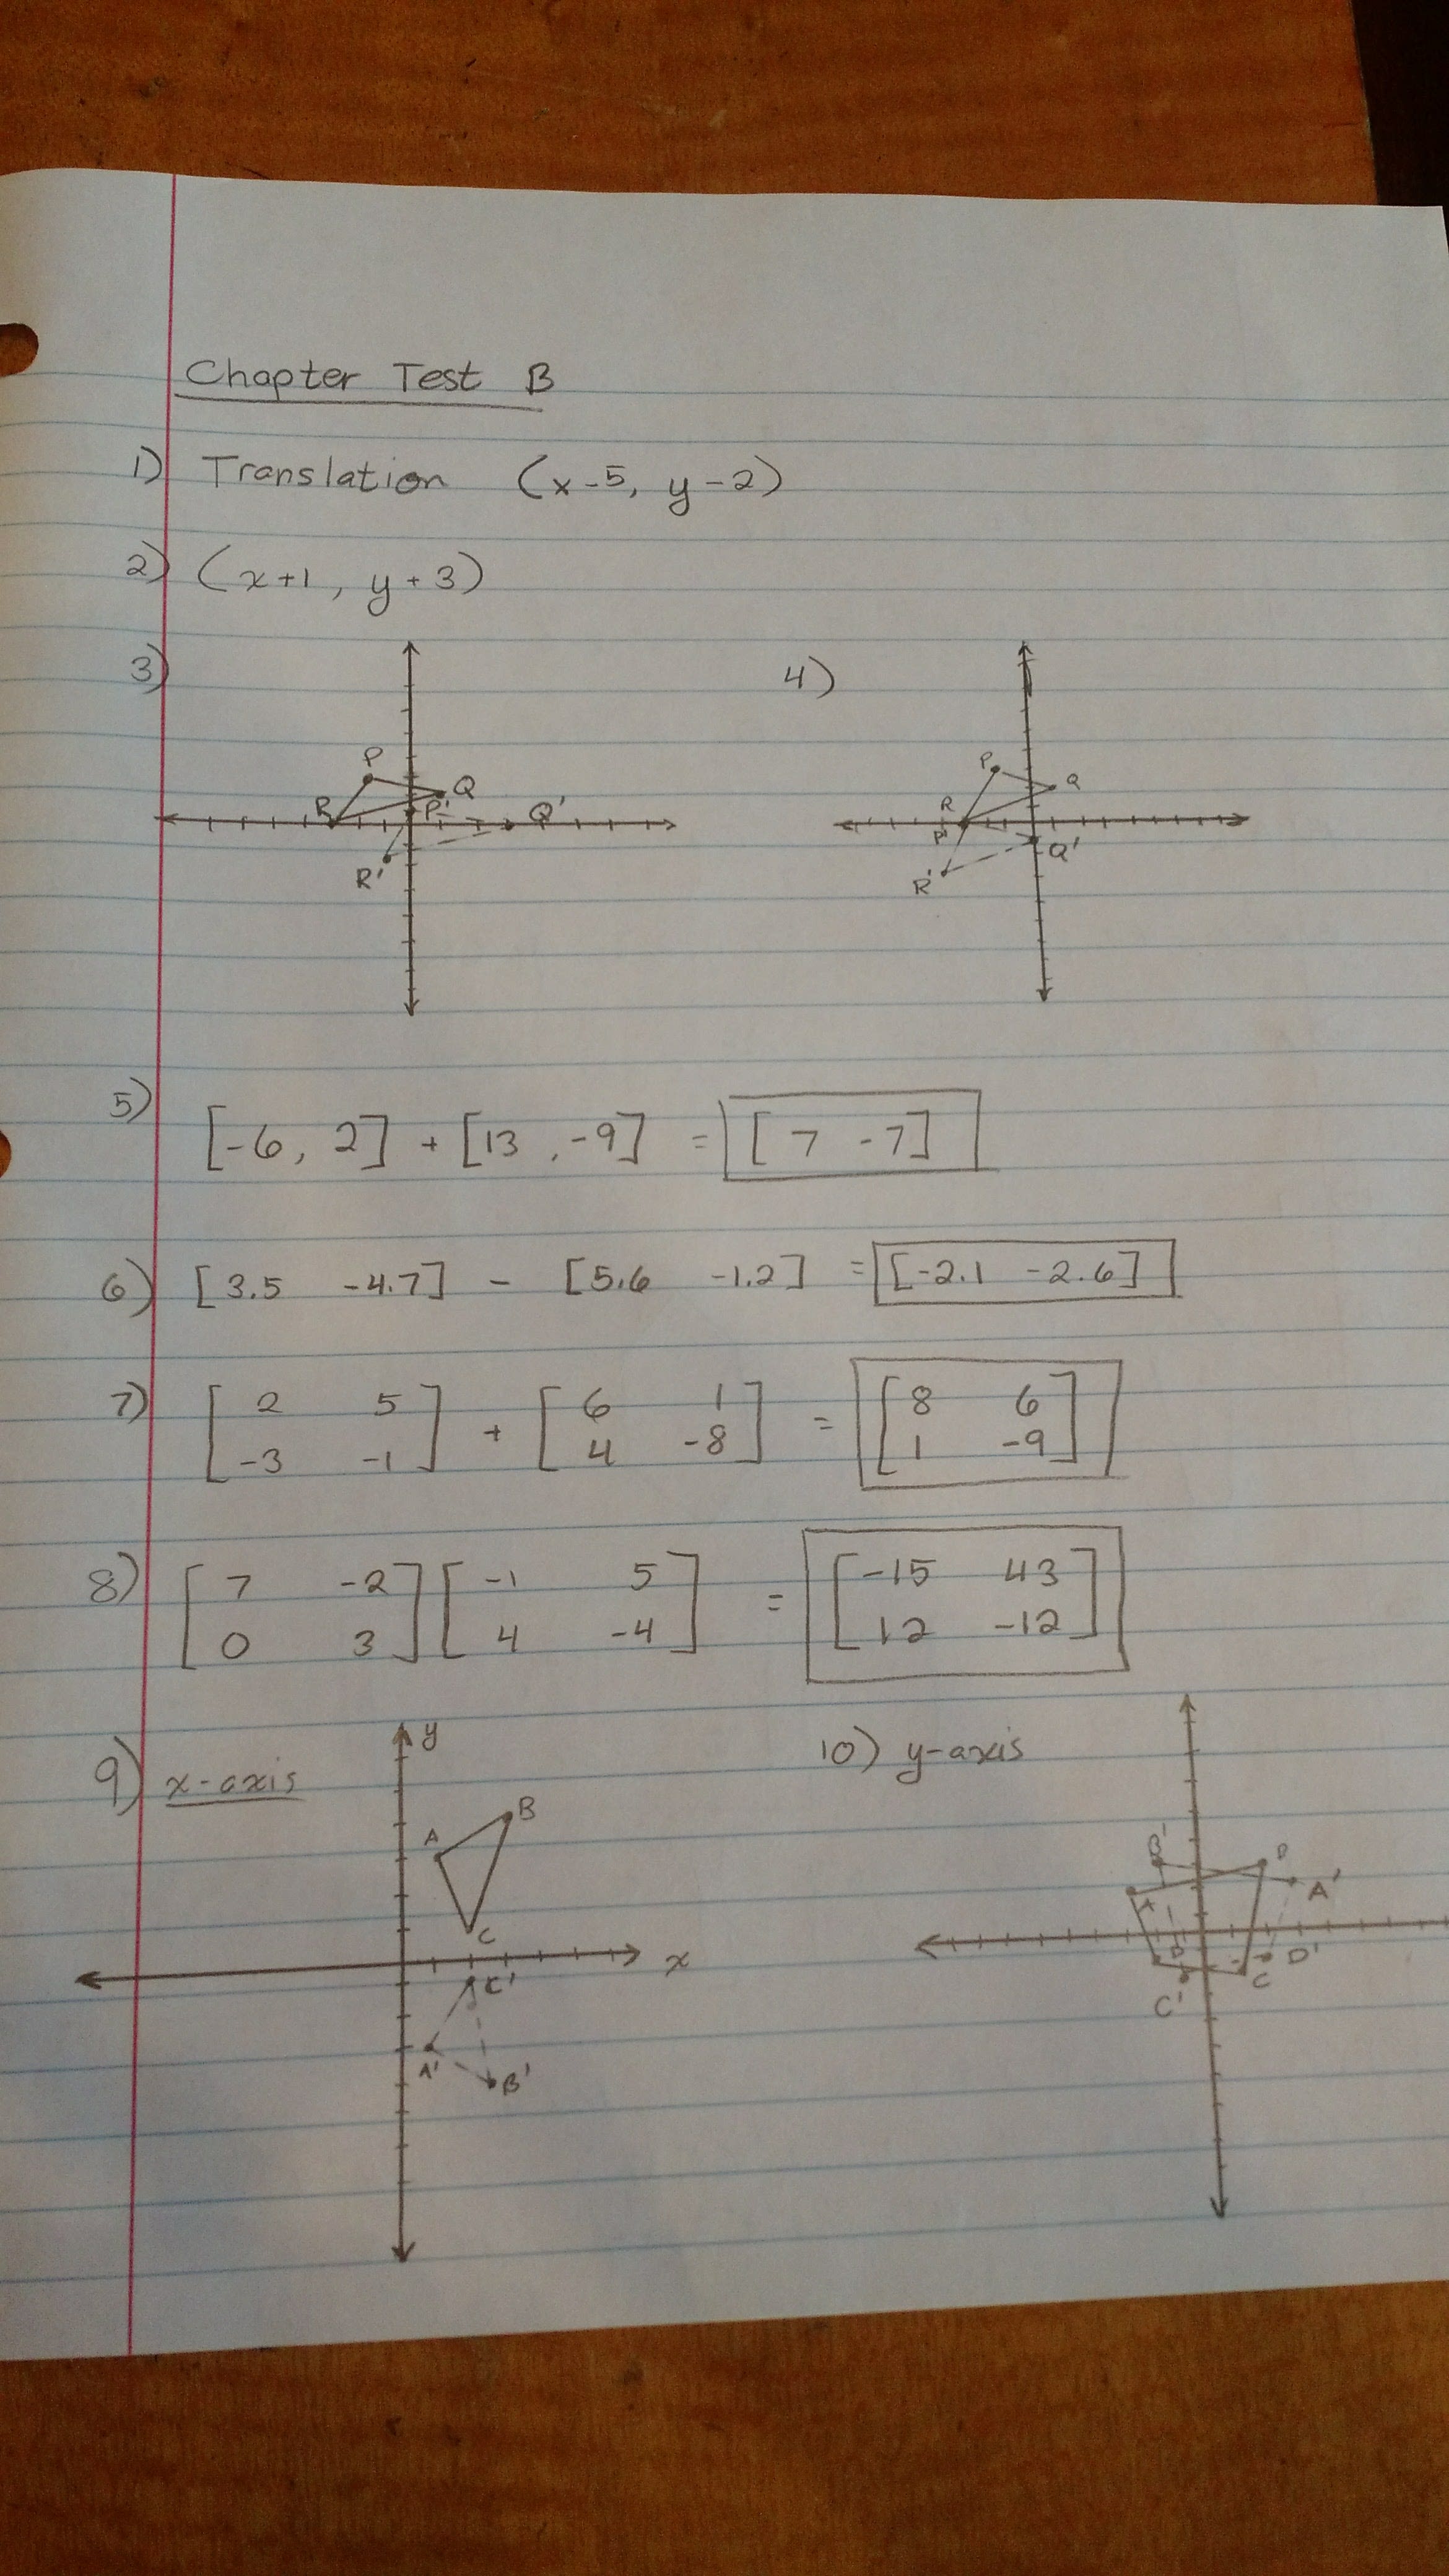 Chapter Test B
1) Translation (x-5, y-2)
2) (x+1, y+3)
3)
P
R
Q
P'
Q'
R'
4)
P
Q
R
P'
Q'
R'
5) [-6, 2] + [13, -9] = [7 -7]
6) [3.5 -4.7] - [5.6 -1.2] = [-2.1 -2.6]
7) [2 5] + [6 1] = [8 6]
[-3 -1] [4 -8] [1 -9]
8) [7 -2] [-1 5] = [-15 43]
[0 3] [4 -4] [12 -12]
9) x-axis
y
B
A
C
x
C'
A'
B'
10) y-axis
B'
A
A'
D'
C
C'